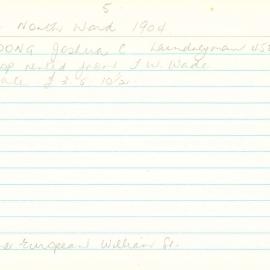 5
North Ward 1904.
DONG Joshua C Laundryman 45
rented from J W. Wade
£ 25 10/-
European William St.